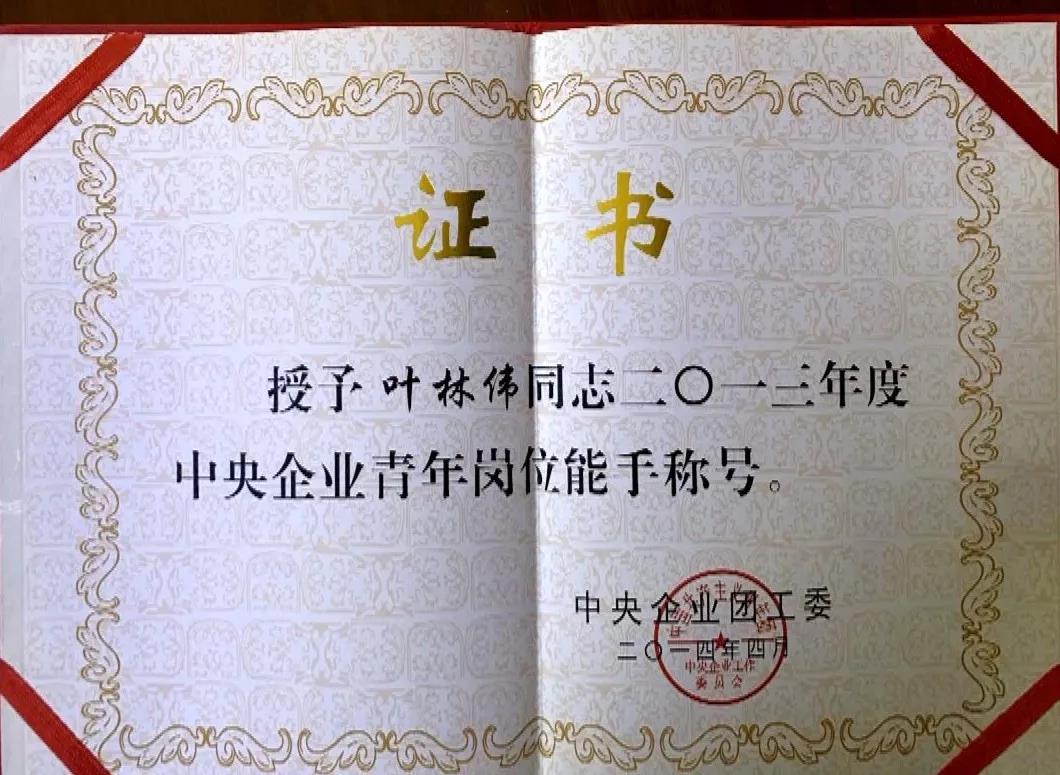 证书
授予叶林伟同志二〇一三年度
中央企业青年岗位能手称号。
中央企业团工委
二〇一四年四月
中央企业工作
委员会